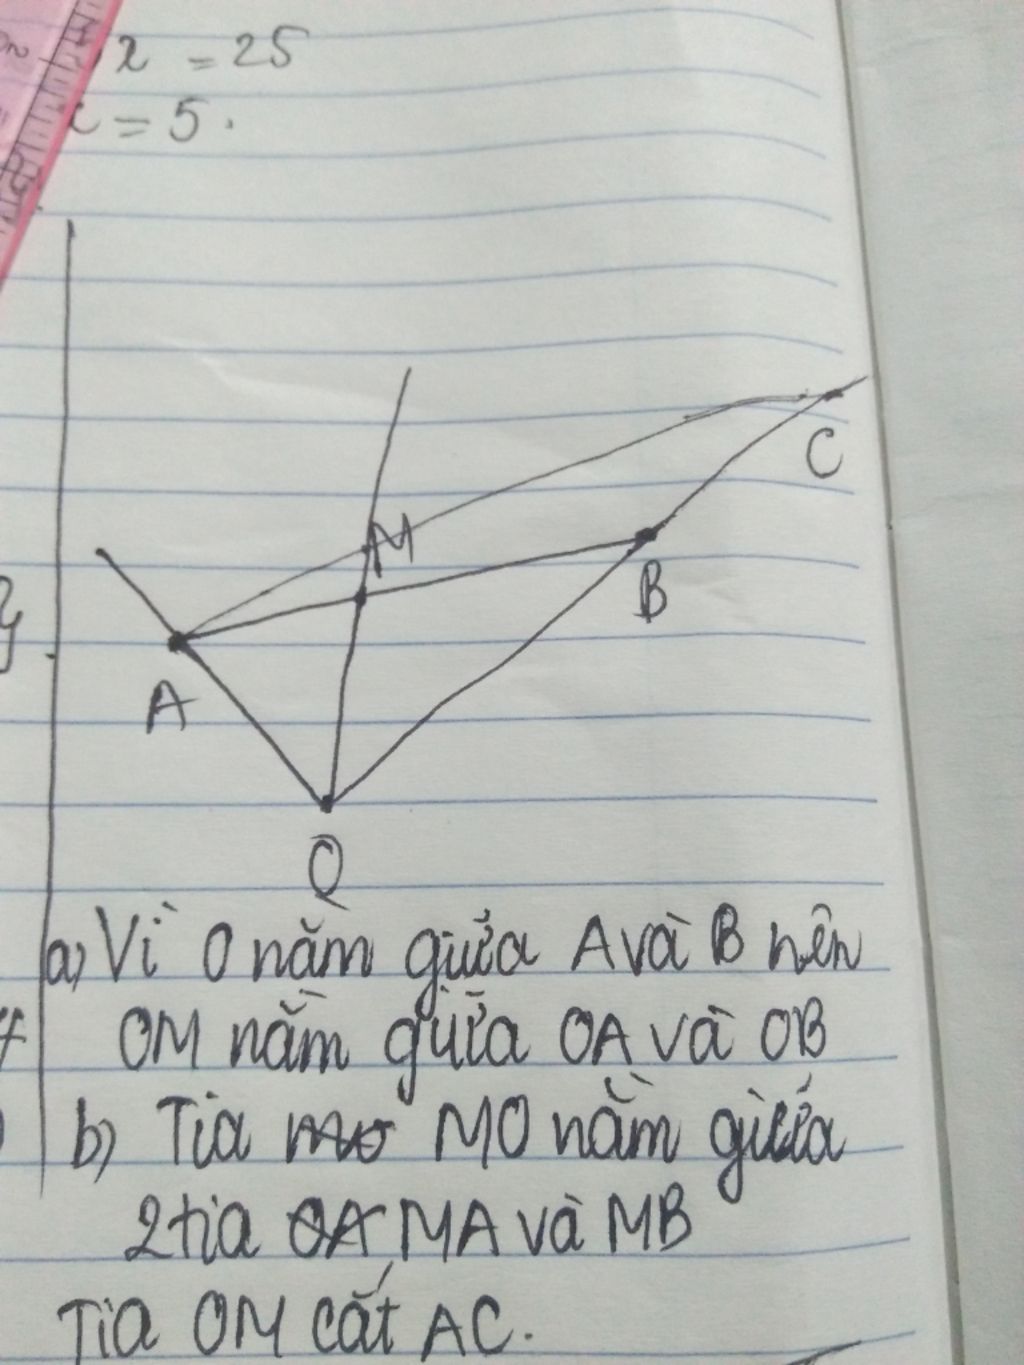 x = 25
x = 5.
M
C
B
A
O
a) Vì O nằm giữa A và B nên
OM nằm giữa OA và OB
b) Tia MO nằm giữa
2 tia MA và MB
Tia OM cắt AC.